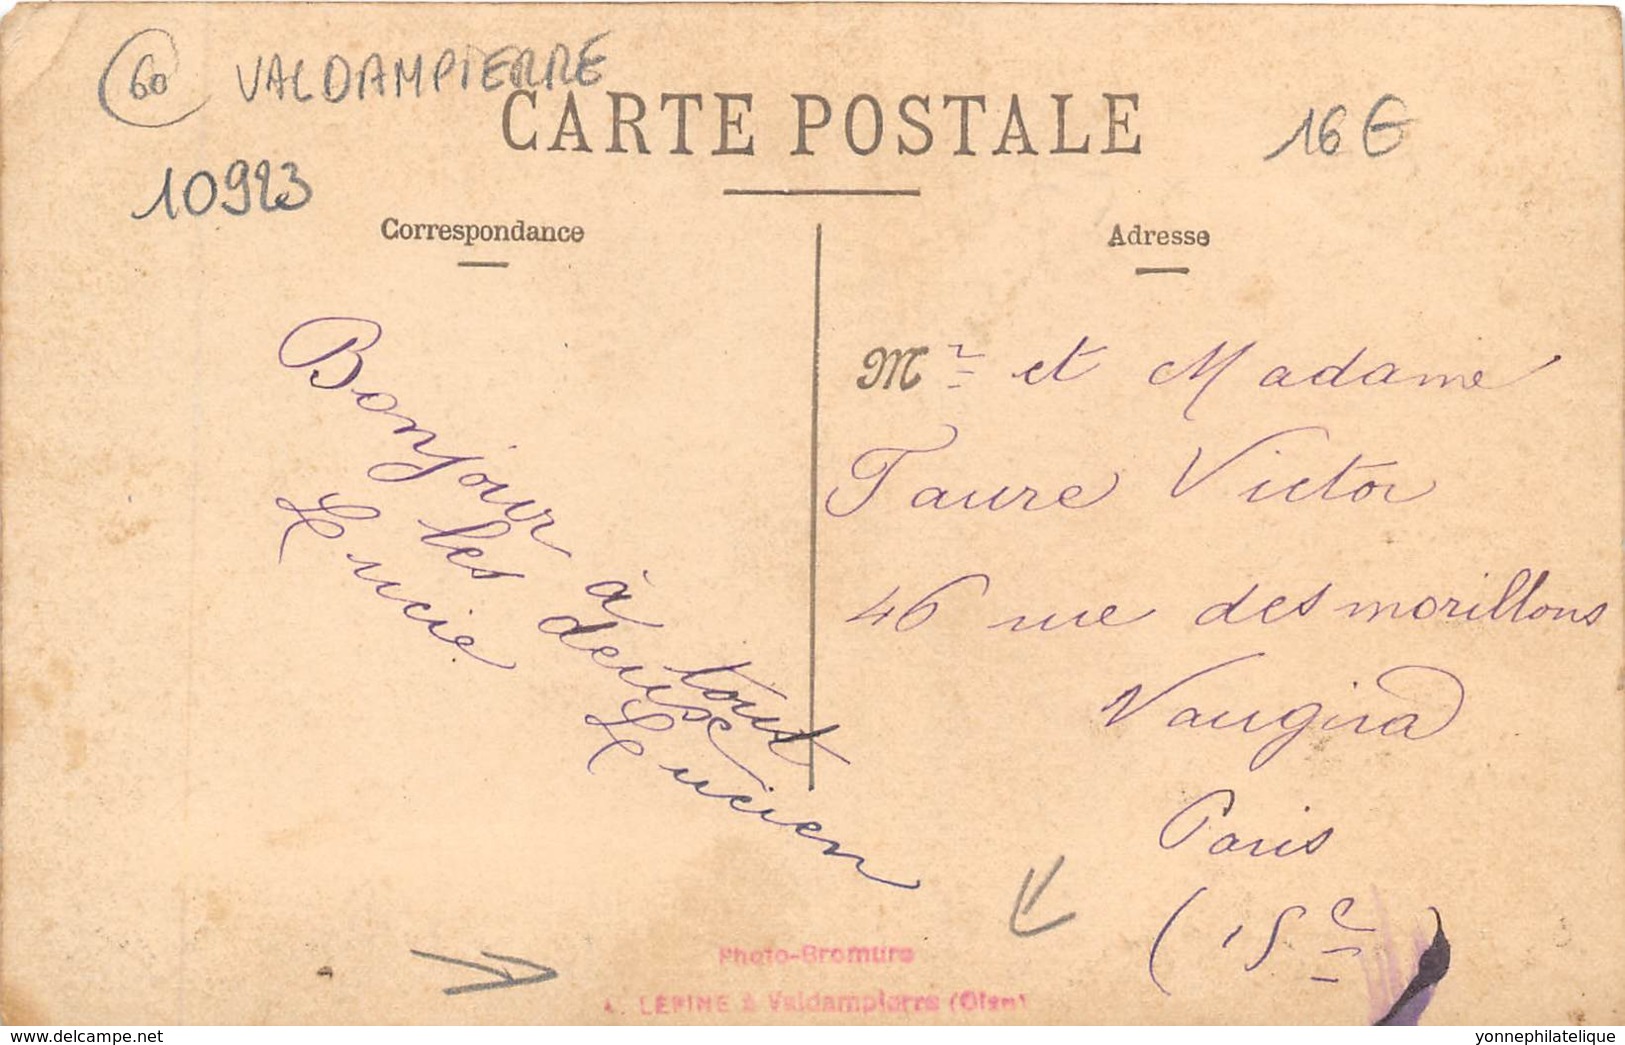 60 VALDAMPIERRE
CARTE POSTALE
16 €
10923
Correspondance
Adresse
Bonjour à tout
les deuse
Lucie Lucien
Mr et Madame
Faure Victor
46 rue des morillons
Vaugirad
Paris
(15e)
Photo-Bromure
L. LEPINE à Valdampierre (Oise)
delcampe.net
yonnephilatelique